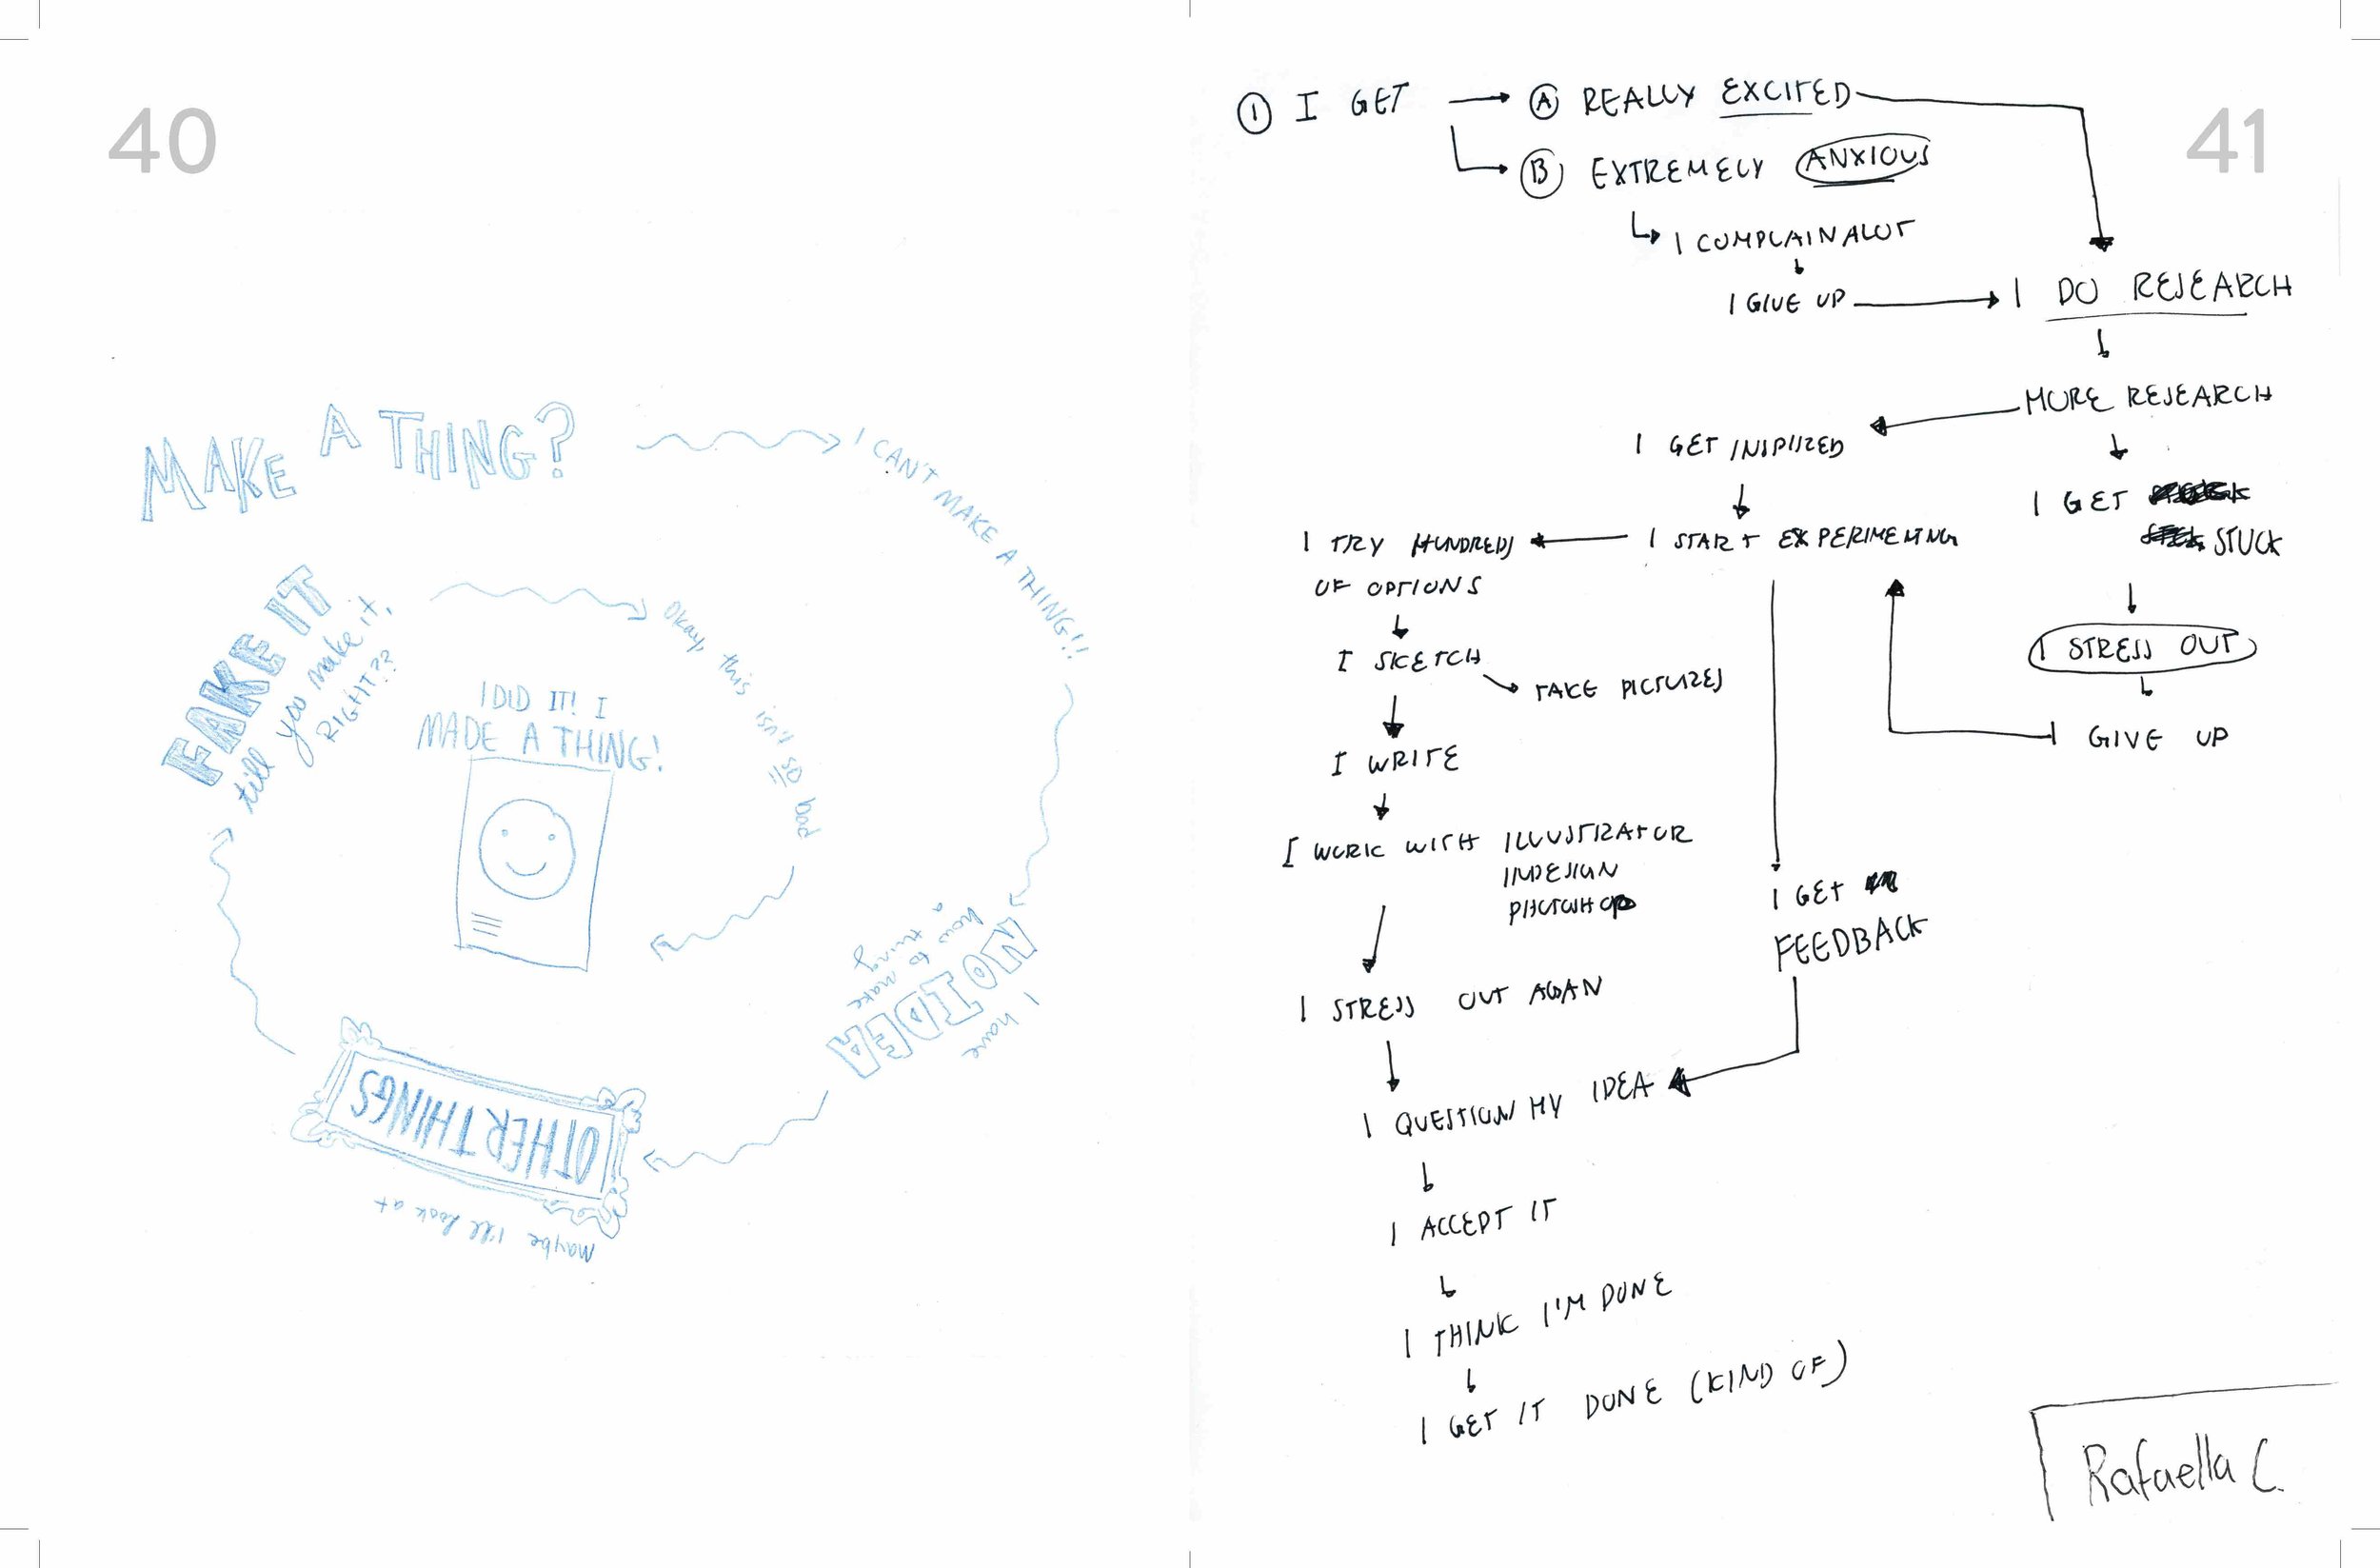 40
MAKE A THING?
I CAN'T MAKE A THING!!
I have
NO IDEA
how to make
a thing
maybe I'll look at
OTHER THINGS
FAKE IT
till you make it,
RIGHT??
Okay, this isn't so bad
I DID IT! I
MADE A THING!
41
1 I GET
A REALLY EXCITED
B EXTREMELY ANXIOUS
I COMPLAIN ALOT
I GIVE UP
I DO RESEARCH
MORE RESEARCH
I GET INSPIRED
I GET
STUCK
I START EXPERIMENTING
I TRY HUNDREDS
OF OPTIONS
I STRESS OUT
I SKETCH
TAKE PICTURES
I GIVE UP
I WRITE
I WORK WITH ILLUSTRATOR
INDESIGN
PHOTOSHOP
I GET
FEEDBACK
I STRESS OUT AGAIN
I QUESTION MY IDEA
I ACCEPT IT
I THINK I'M DONE
I GET IT DONE (KIND OF)
Rafaella C.